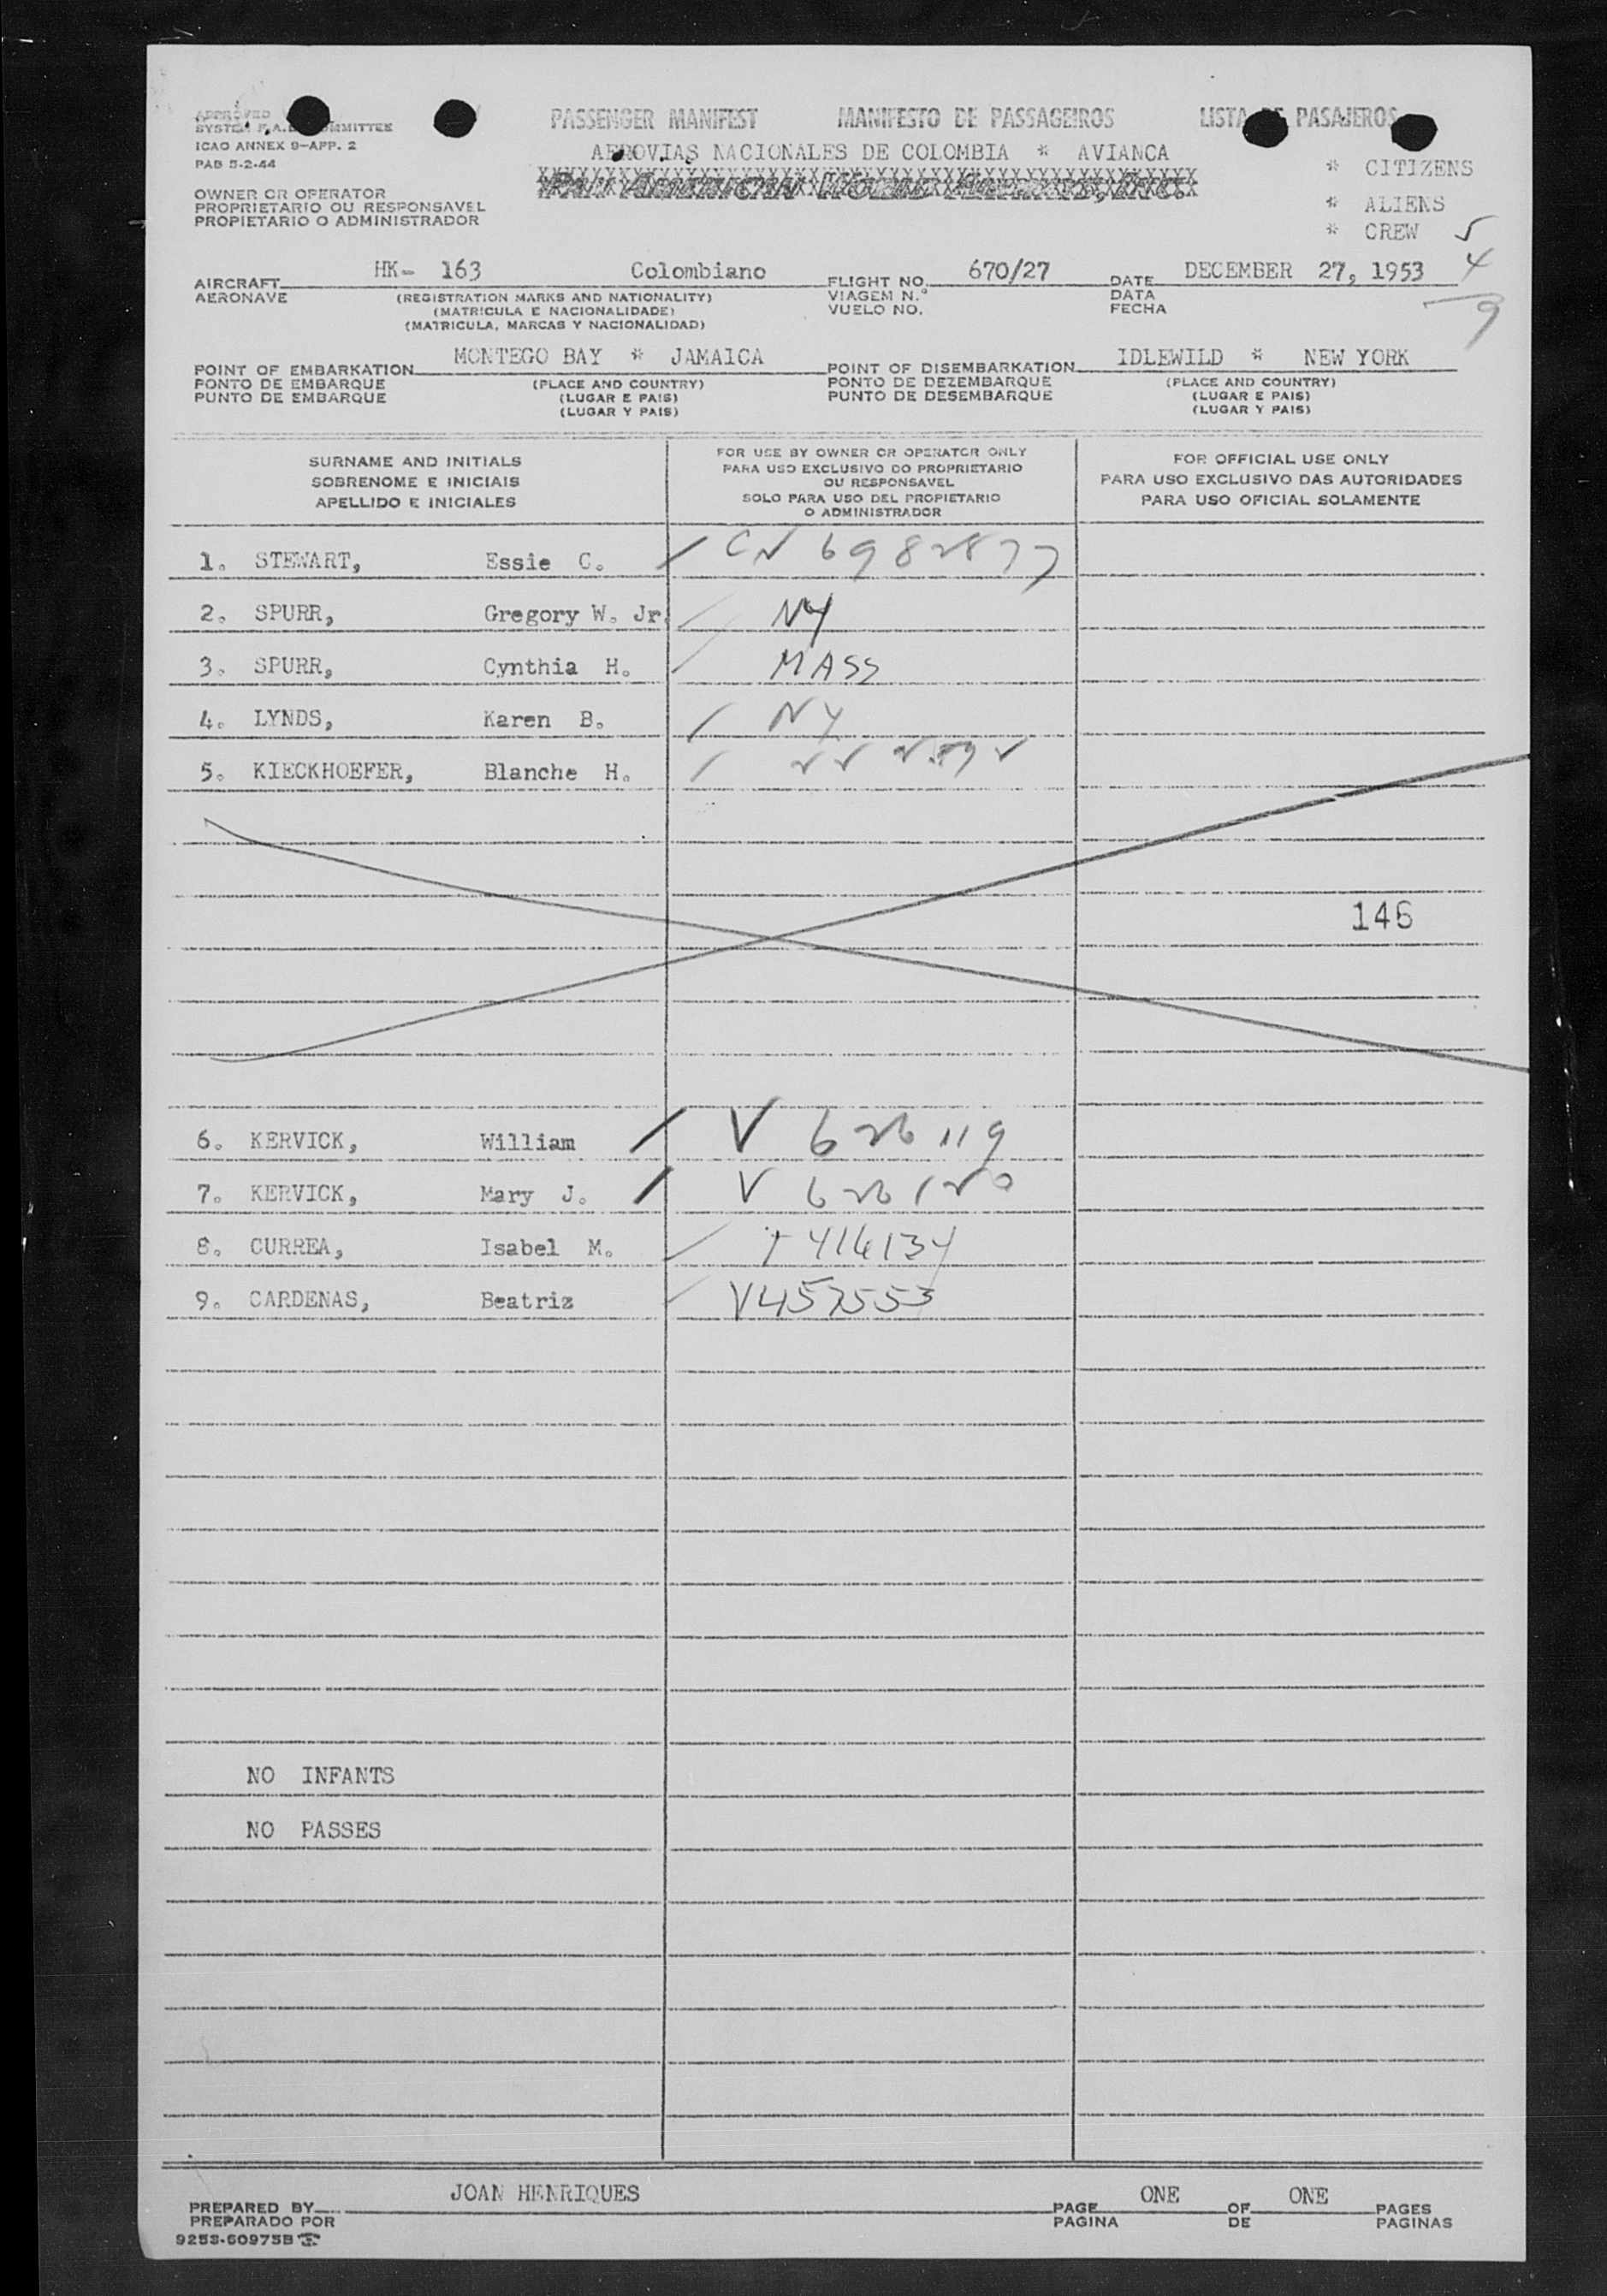 PASSENGER MANIFEST MANIFESTO DE PASSAGEIROS LISTA DE PASAJEROS
APPROVED
SYSTEM F.A.L. COMMITTEE
ICAO ANNEX 9-APP. 2
PAB 5-2-44
AEROVIAS NACIONALES DE COLOMBIA * AVIANCA
PAN AMERICAN WORLD AIRWAYS, INC.
* CITIZENS
* ALIENS
* CREW 5
4
9
OWNER OR OPERATOR
PROPRIETARIO OU RESPONSAVEL
PROPIETARIO O ADMINISTRADOR
AIRCRAFT HK- 163 Colombiano FLIGHT NO. 670/27 DATE DECEMBER 27, 1953
AERONAVE (REGISTRATION MARKS AND NATIONALITY) VIAGEM N.º DATA
(MATRICULA E NACIONALIDADE) VUELO NO. FECHA
(MATRICULA, MARCAS Y NACIONALIDAD)
POINT OF EMBARKATION MONTEGO BAY * JAMAICA POINT OF DISEMBARKATION IDLEWILD * NEW YORK
PONTO DE EMBARQUE (PLACE AND COUNTRY) PONTO DE DEZEMBARQUE (PLACE AND COUNTRY)
PUNTO DE EMBARQUE (LUGAR E PAIS) PUNTO DE DESEMBARQUE (LUGAR E PAIS)
(LUGAR Y PAIS) (LUGAR Y PAIS)
SURNAME AND INITIALS
SOBRENOME E INICIAIS
APELLIDO E INICIALES
FOR USE BY OWNER OR OPERATOR ONLY
PARA USO EXCLUSIVO DO PROPRIETARIO
OU RESPONSAVEL
SOLO PARA USO DEL PROPIETARIO
O ADMINISTRADOR
FOR OFFICIAL USE ONLY
PARA USO EXCLUSIVO DAS AUTORIDADES
PARA USO OFICIAL SOLAMENTE
1. STEWART, Essie C. CN 6982877
2. SPURR, Gregory W. Jr. NY
3. SPURR, Cynthia H. MASS
4. LYNDS, Karen B. NY
5. KIECKHOEFER, Blanche H.
146
6. KERVICK, William V 626119
7. KERVICK, Mary J. V 626120
8. CURREA, Isabel M. T 416134
9. CARDENAS, Beatriz V457553
NO INFANTS
NO PASSES
PREPARED BY JOAN HENRIQUES PAGE ONE OF ONE PAGES
PREPARADO POR PAGINA DE PAGINAS
9253-60975B